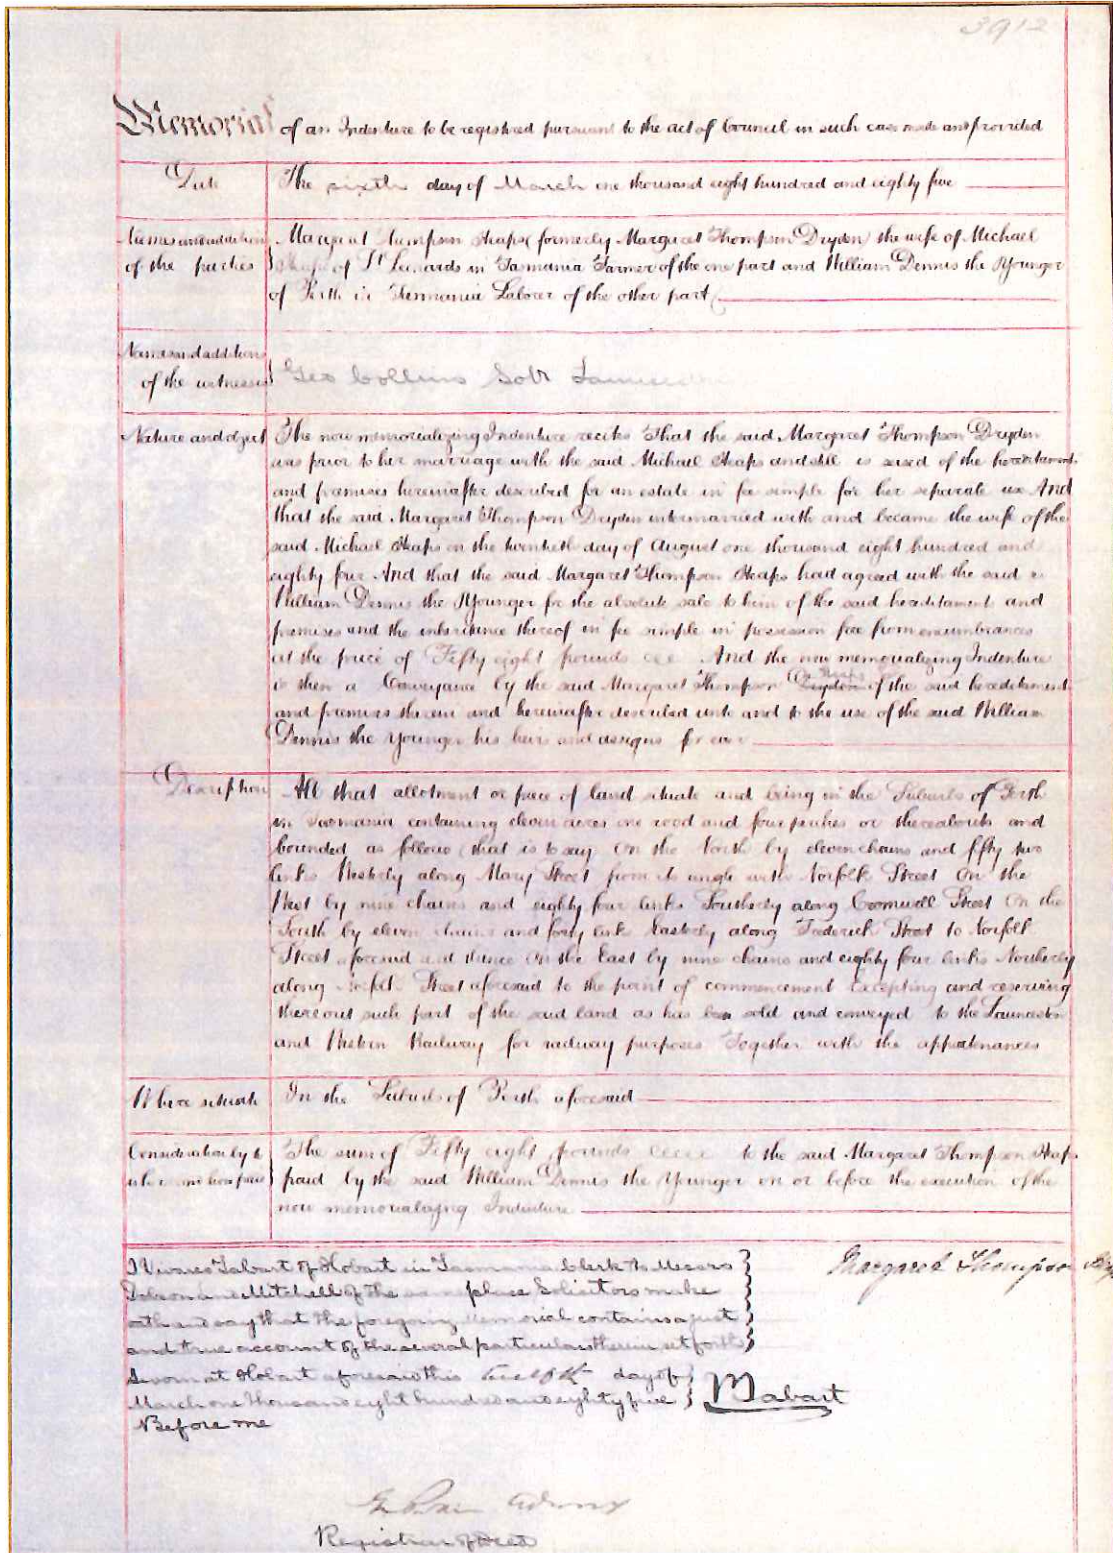 3912
Memorial of an Indenture to be registered pursuant to the act of Council in such case made and provided
Date
The sixth day of March one thousand eight hundred and eighty five
Names and addition of the parties
Margaret Thompson Heaps (formerly Margaret Thompson Dryden) the wife of Michael
Heaps of St Leonards in Tasmania Farmer of the one part and William Dennis the Younger
of Perth in Tasmania Laborer of the other part
Names and additions of the witnesses
Geo Collins Solr Launceston
Nature and object
The now memorializing Indenture recites That the said Margaret Thompson Dryden
was prior to her marriage with the said Michael Heaps and still is seised of the hereditament
and premises hereinafter described for an estate in fee simple for her separate use And
that the said Margaret Thompson Dryden intermarried with and became the wife of the
said Michael Heaps on the twentieth day of August one thousand eight hundred and
eighty four And that the said Margaret Thompson Heaps had agreed with the said
William Dennis the Younger for the absolute sale to him of the said hereditament and
premises and the inheritance thereof in fee simple in possession free from encumbrances
at the price of Fifty eight pounds And the now memorializing Indenture
is then a Conveyance by the said Margaret Thompson Dryden of the said hereditament
and premises therein and hereinafter described unto and to the use of the said William
Dennis the Younger his heirs and assigns for ever
Description
All that allotment or piece of land situate and being in the Suburbs of Perth
in Tasmania containing eleven acres one rood and four perches or thereabouts and
bounded as follows (that is to say On the North by eleven chains and fifty two
links Westerly along Mary Street from its angle with Norfolk Street On the
West by nine chains and eighty four links Southerly along Cromwell Street On the
South by eleven chains and forty links Easterly along Frederick Street to Norfolk
Street aforesaid and thence On the East by nine chains and eighty four links Northerly
along Norfolk Street aforesaid to the point of commencement Excepting and reserving
thereout such part of the said land as has been sold and conveyed to the Launceston
and Western Railway for railway purposes Together with the appurtenances
Where situate
In the Suburbs of Perth aforesaid
Consideration by to whom and how paid
The sum of Fifty eight pounds to the said Margaret Thompson Heaps
paid by the said William Dennis the Younger on or before the execution of the
now memorializing Indenture
I Tabart of Hobart in Tasmania Clerk to Messrs
Dobson and Mitchell of the same place Solicitors make
oath and say that the foregoing Memorial contains a just
and true account of the several particulars therein set forth
Sworn at Hobart aforesaid this twelfth day of
March one thousand eight hundred and eighty five
Before me
Margaret Thompson Heaps
Tabart
Registrar of Deeds